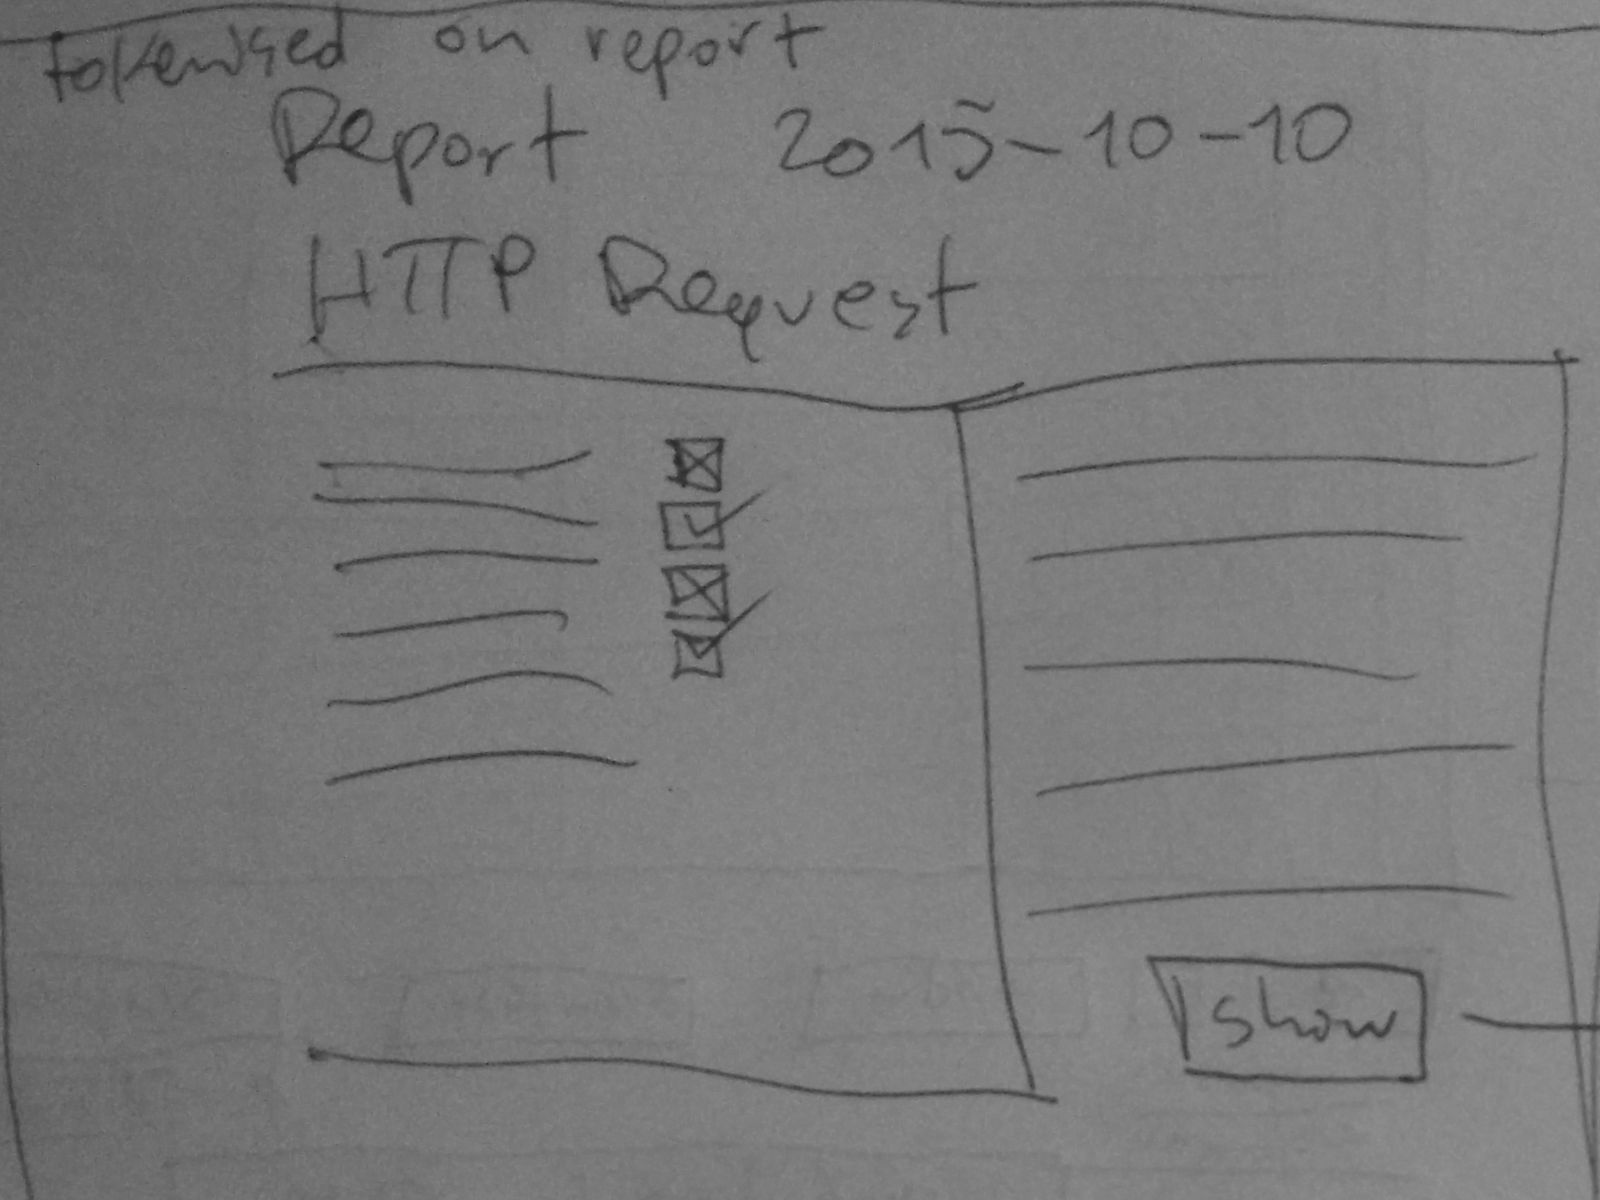 tokenised on report
Report 2015-10-10
HTTP Request
show